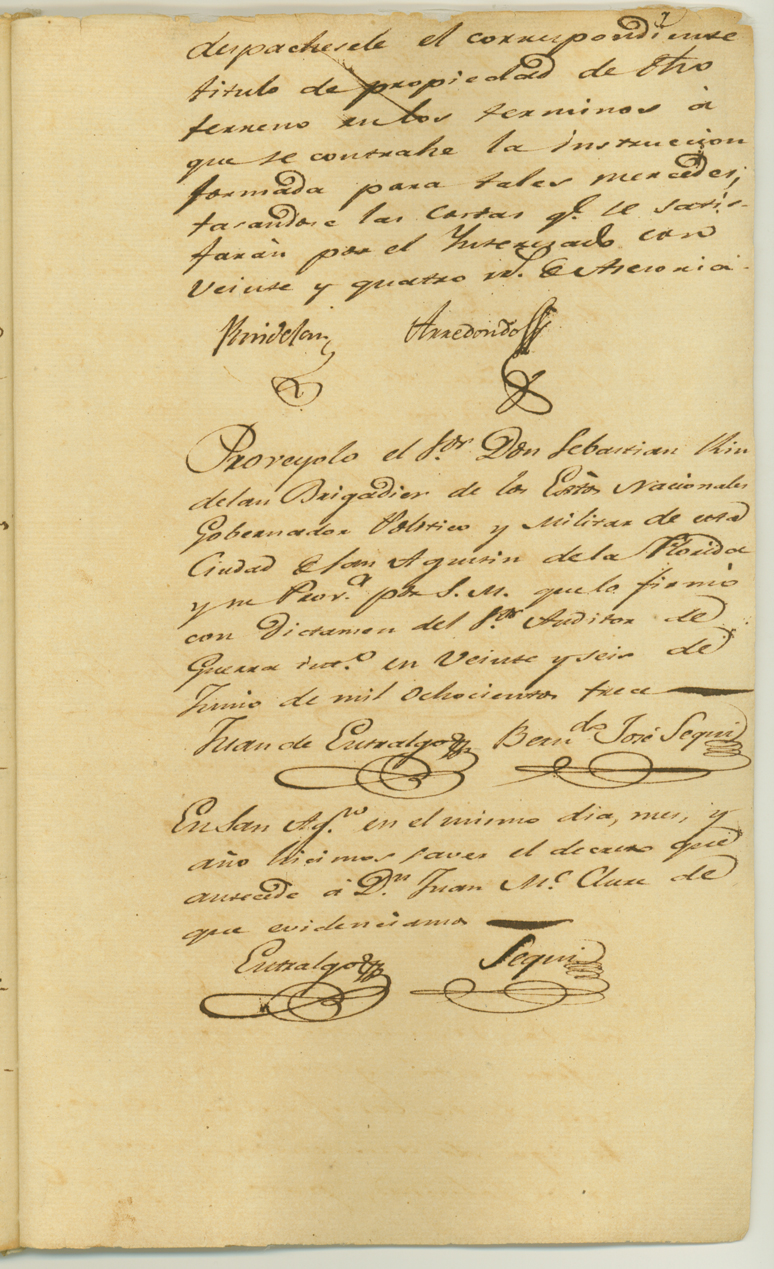 despachesele el correspondiente
titulo de propiedad de dho
terreno en los terminos à
que se contrahe la instruccion
formada para tales mercedes,
tasandose las costas qe. se satis-
farán por el Interezado con
veinte y quatro rs. de Asesoria.
Kindelan Arredondo
Proveyolo el Sor. Don Sebastian Kin
delan Brigadier de los Extos Nacionales
Gobernador Politico y Militar de esta
Ciudad de San Agustin de la Florida
y su Prova. por S. M. que lo firmò
con Dictamen del Sor. Auditor de
Guerra into. en veinte y seis de
Junio de mil ochocientos trece
Juan de Entralgo Berndo. José Segui
En San Agno. en el mismo dia, mes, y
año hicimos saver el decreto que
antecede à Dn. Juan Mc Clure de
que evidenciamos
Entralgo Segui